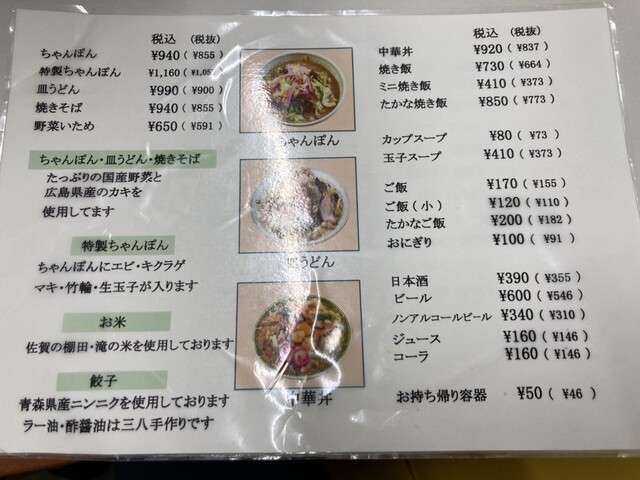 税込 (税抜)
ちゃんぽん ¥940 ( ¥855
特製ちゃんぽん ¥1,160 ( ¥1,05
皿うどん ¥990 ( ¥900
焼きそば ¥940 ( ¥855
野菜いため ¥650 ( ¥591
ちゃんぽん・皿うどん・焼きそば
たっぷりの国産野菜と
広島県産のカキを
使用してます
特製ちゃんぽん
ちゃんぽんにエビ・キクラゲ
マキ・竹輪・生玉子が入ります
お米
佐賀の棚田・滝の米を使用しております
餃子
青森県産ニンニクを使用しております
ラー油・酢醤油は三八手作りです
ちゃんぽん
皿うどん
中華丼
税込 (税抜)
中華丼 ¥920 ( ¥837
焼き飯 ¥730 ( ¥664
ミニ焼き飯 ¥410 ( ¥373
たかな焼き飯 ¥850 ( ¥773
カップスープ ¥80 ( ¥73
玉子スープ ¥410 ( ¥373
ご飯 ¥170 ( ¥155
ご飯(小) ¥120 ( ¥110
たかなご飯 ¥200 ( ¥182
おにぎり ¥100 ( ¥91
日本酒 ¥390 ( ¥355
ビール ¥600 ( ¥546
ノンアルコールビール ¥340 ( ¥310
ジュース ¥160 ( ¥146
コーラ ¥160 ( ¥146
お持ち帰り容器 ¥50 ( ¥46